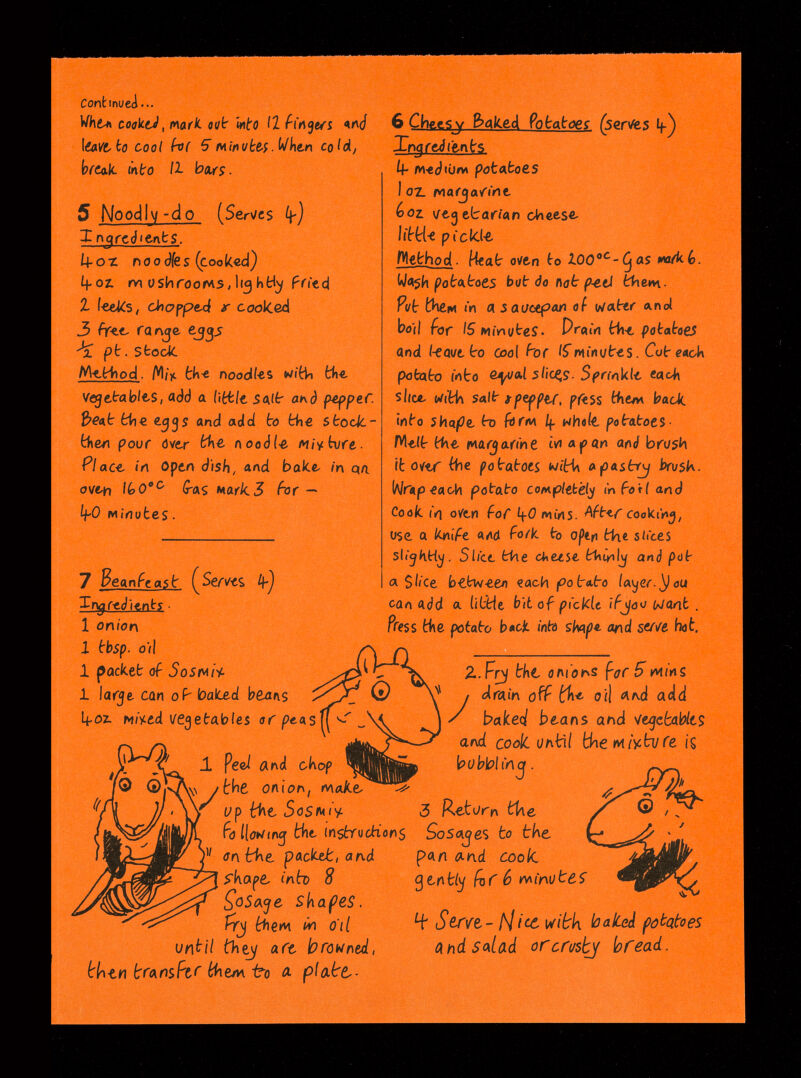 continued...
When cooked, mark out into 12 fingers and
leave to cool for 5 minutes. When cold,
break into 12 bars.
5 Noodly-do (Serves 4)
Ingredients.
4oz noodles (cooked)
4oz mushrooms, lightly fried
2 leeks, chopped & cooked
3 free range eggs
½ pt. stock
Method. Mix the noodles with the
vegetables, add a little salt and pepper.
Beat the eggs and add to the stock -
then pour over the noodle mixture.
Place in open dish, and bake in an
oven 160°C Gas Mark 3 for —
40 minutes.
6 Cheesy Baked Potatoes (serves 4)
Ingredients
4 medium potatoes
1 oz margarine
6oz vegetarian cheese
little pickle
Method. Heat oven to 200°C - Gas mark 6.
Wash potatoes but do not peel them.
Put them in a saucepan of water and
boil for 15 minutes. Drain the potatoes
and leave to cool for 15 minutes. Cut each
potato into equal slices. Sprinkle each
slice with salt & pepper, press them back
into shape to form 4 whole potatoes.
Melt the margarine in a pan and brush
it over the potatoes with a pastry brush.
Wrap each potato completely in foil and
cook in oven for 40 mins. After cooking,
use a knife and fork to open the slices
slightly. Slice the cheese thinly and put
a Slice between each potato layer. You
can add a little bit of pickle if you want.
Press the potato back into shape and serve hot.
7 Beanfeast (Serves 4)
Ingredients.
1 onion
1 tbsp. oil
1 packet of Sosmix
1 large can of baked beans
4oz mixed vegetables or peas
1 Peel and chop
the onion, make
up the Sosmix
following the instructions
on the packet, and
shape into 8
Sosage shapes.
Fry them in oil
until they are browned,
then transfer them to a plate.
2. Fry the onions for 5 mins
drain off the oil and add
baked beans and vegetables
and cook until the mixture is
bubbling.
3 Return the
Sosages to the
pan and cook
gently for 6 minutes
4 Serve - Nice with baked potatoes
and salad or crusty bread.